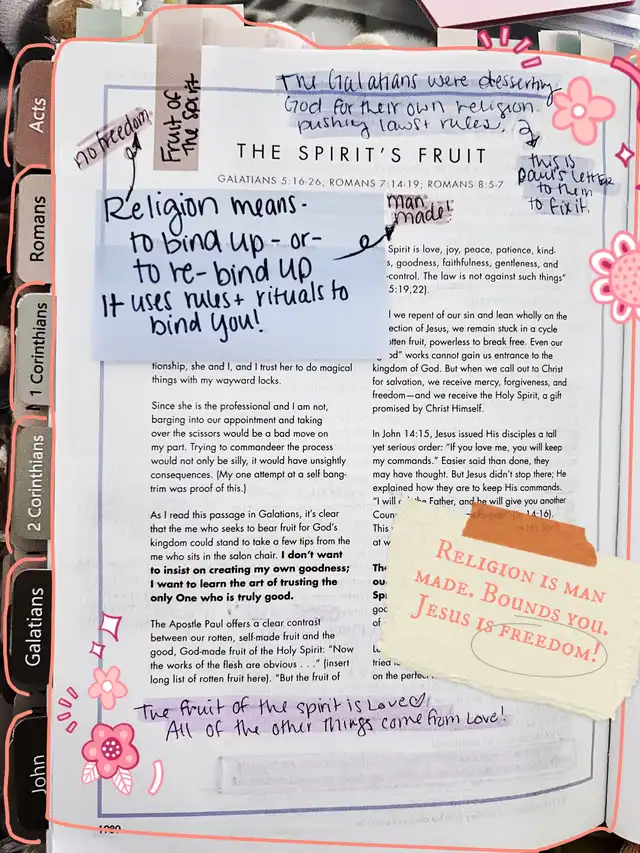 Acts
Romans
1 Corinthians
2 Corinthians
Galatians
John
Fruit of
The Spirit
no freedom
The Galatians were desserting
God for their own religion
pushing laws + rules.
this is
Paul's letter
to them
to fix it.
THE SPIRIT'S FRUIT
GALATIANS 5:16-26, ROMANS 7:14-19; ROMANS 8:5-7
Religion means-
to bind up - or -
to re-bind up
It uses rules + rituals to
bind you!
man
made!
tionship, she and I, and I trust her to do magical
things with my wayward locks.
Since she is the professional and I am not,
barging into our appointment and taking
over the scissors would be a bad move on
my part. Trying to commandeer the process
would not only be silly, it would have unsightly
consequences. (My one attempt at a self bang-
trim was proof of this.)
As I read this passage in Galatians, it's clear
that the me who seeks to bear fruit for God's
kingdom could stand to take a few tips from the
me who sits in the salon chair. I don't want
to insist on creating my own goodness;
I want to learn the art of trusting the
only One who is truly good.
The Apostle Paul offers a clear contrast
between our rotten, self-made fruit and the
good, God-made fruit of the Holy Spirit: "Now
the works of the flesh are obvious . . ." (insert
long list of rotten fruit here). "But the fruit of
Spirit is love, joy, peace, patience, kind-
s, goodness, faithfulness, gentleness, and
-control. The law is not against such things"
5:19,22).
l we repent of our sin and lean wholly on the
ection of Jesus, we remain stuck in a cycle
otten fruit, powerless to break free. Even our
od" works cannot gain us entrance to the
kingdom of God. But when we call out to Christ
for salvation, we receive mercy, forgiveness, and
freedom—and we receive the Holy Spirit, a gift
promised by Christ Himself.
In John 14:15, Jesus issued His disciples a tall
yet serious order: "If you love me, you will keep
my commands." Easier said than done, they
may have thought. But Jesus didn't stop there; He
explained how they are to keep His commands.
"I will the Father, and he will give you another
Coun forever" 14:16).
This
at w
The
ou
Spi
goo
of
Lu
tried
on the perfec
RELIGION IS MAN
MADE. BOUNDS YOU.
JESUS IS FREEDOM!
The fruit of the spirit is Love♡
All of the other things come from Love!
1980